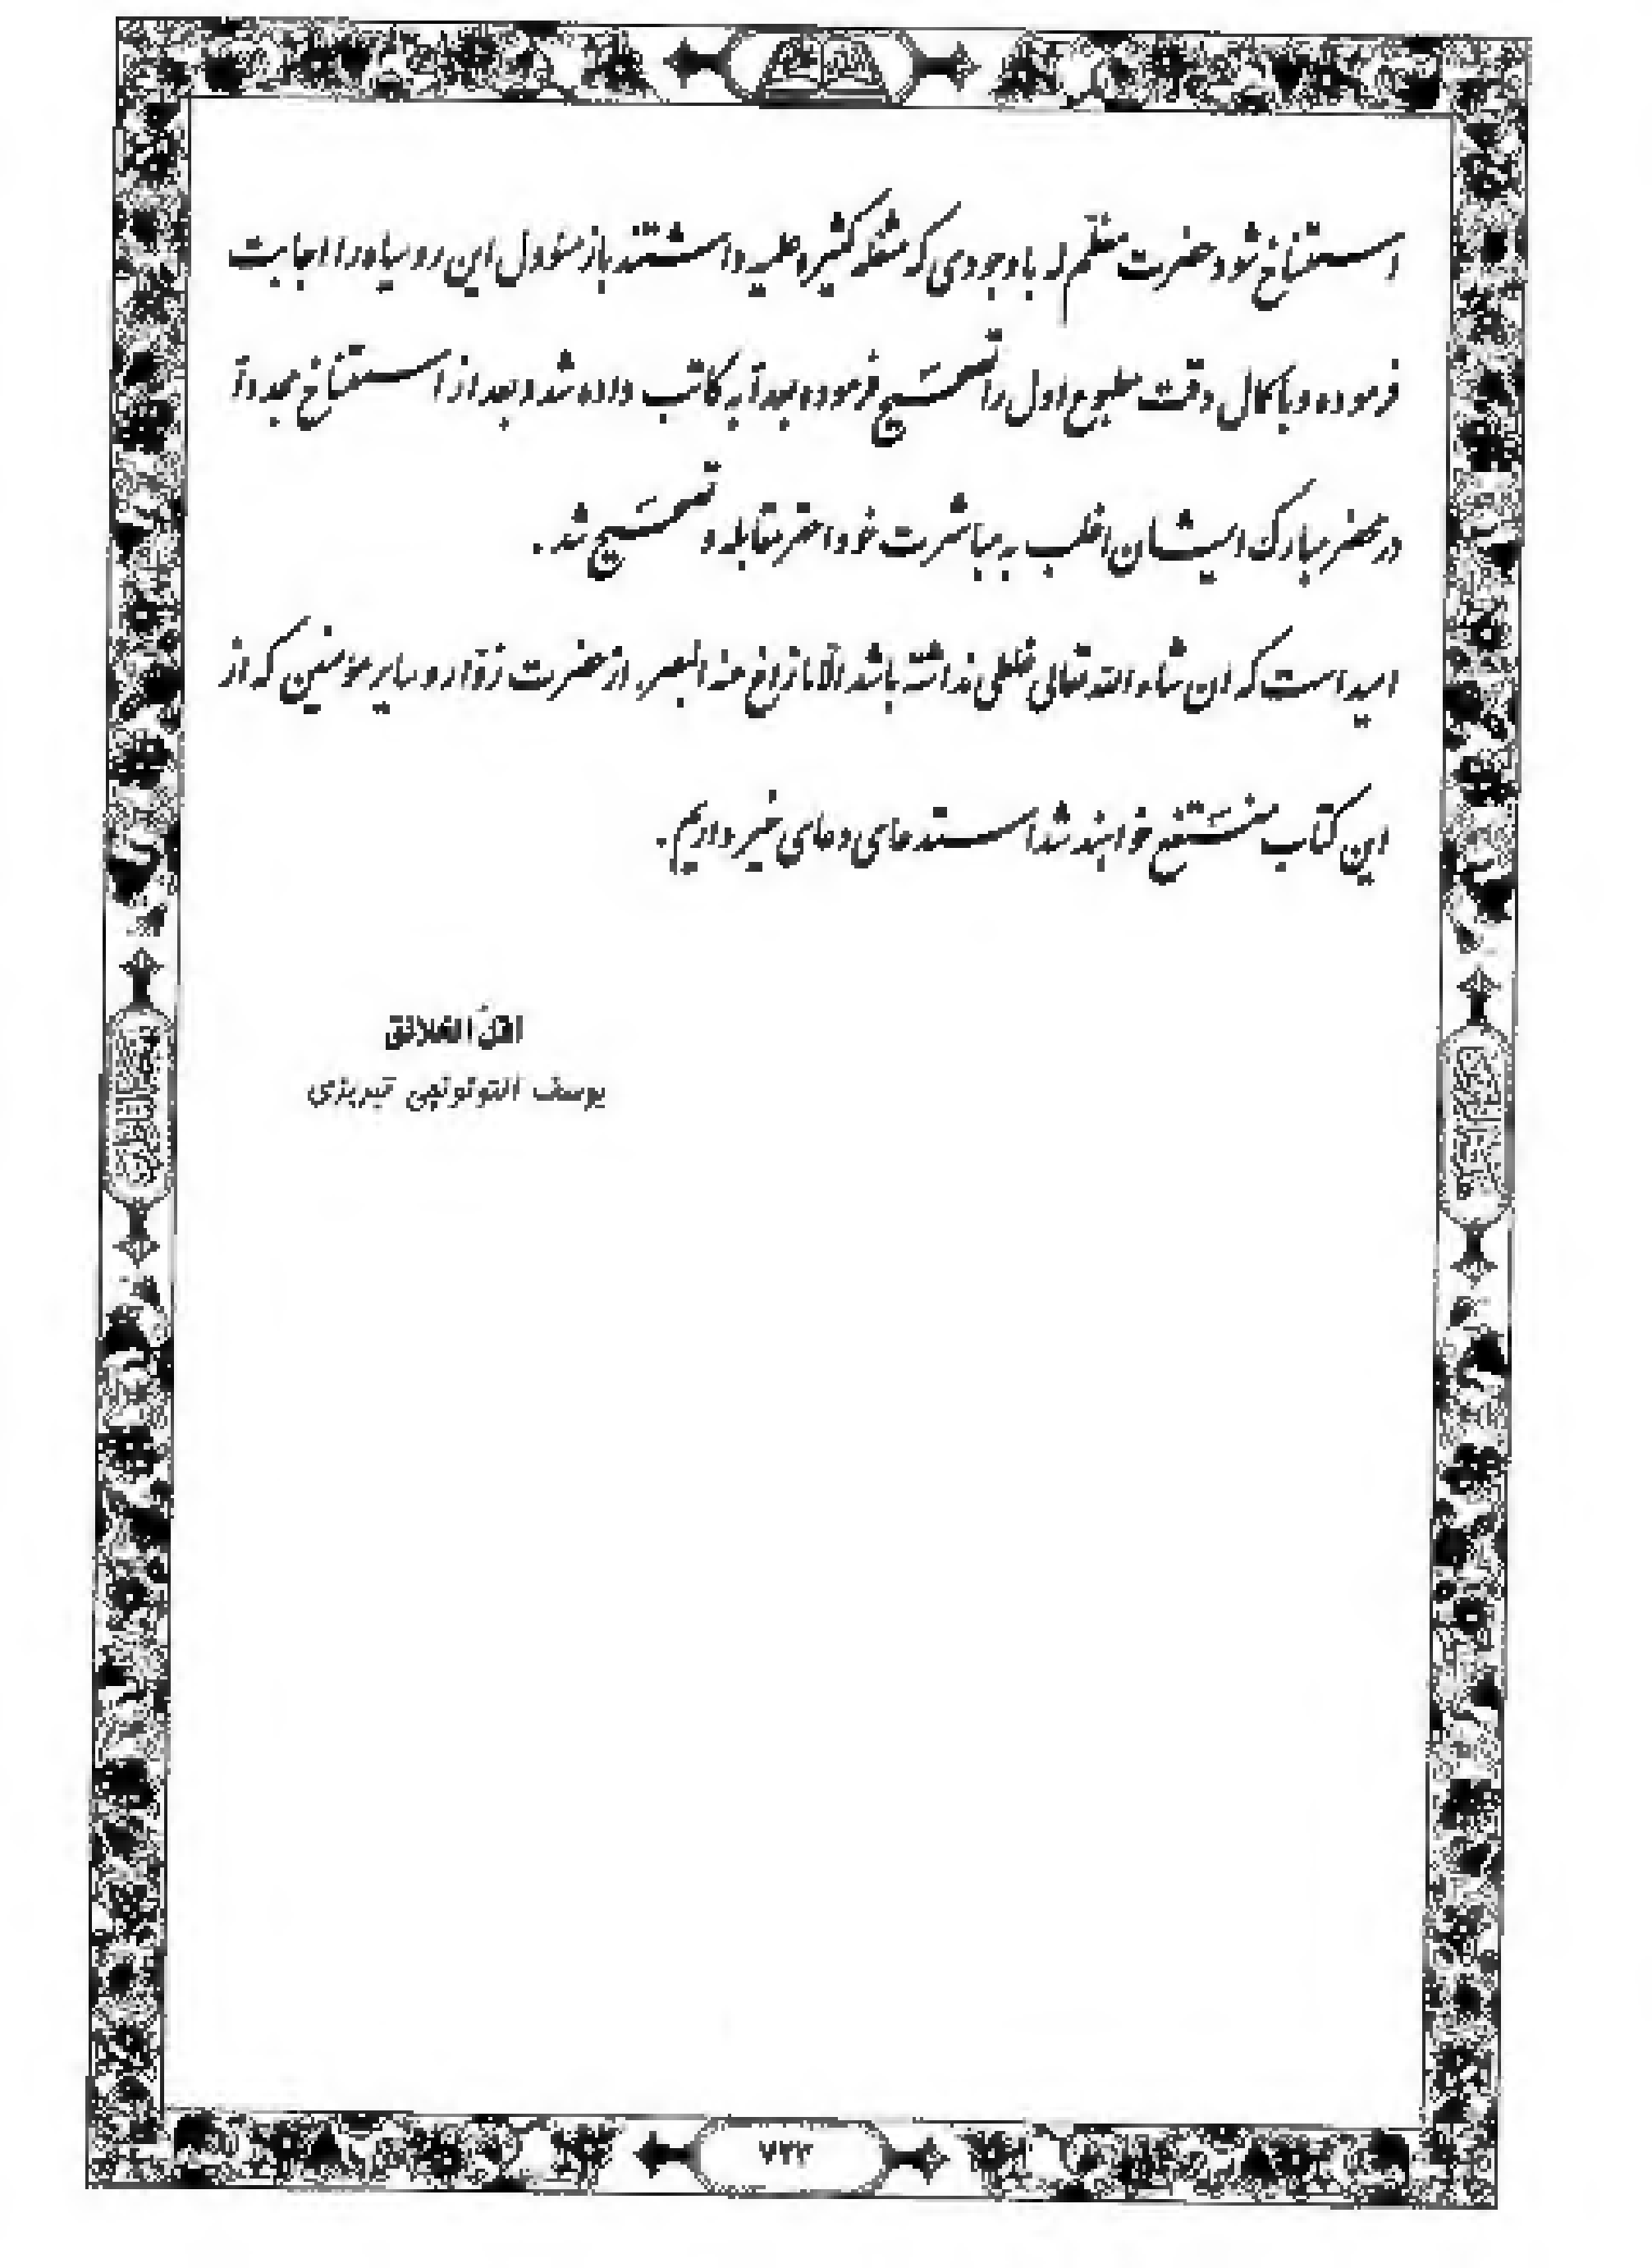 استنساخ شود حضرت معظّم له با وجودی که مشغله کثیره علمیه داشتند باز مسؤول این رو سیاه را اجابت
فرموده و با کمال دقت مطبوع اول را تصحیح فرموده بعداً به کاتب داده شد و بعد از استنساخ مجدداً
در محضر مبارک ایشان اغلب به مباشرت خود احقر مقابله و تصحیح شد.
امید است که ان شاء الله تعالی غلطی نداشته باشد الّا ما زاغ عنه البصر، از حضرت زوّار و سایر مؤمنین که از
این کتاب منتفع خواهند شد استدعای دعای خیر داریم.
اقلّ الخلائق
یوسف التوتونچی تبریزی